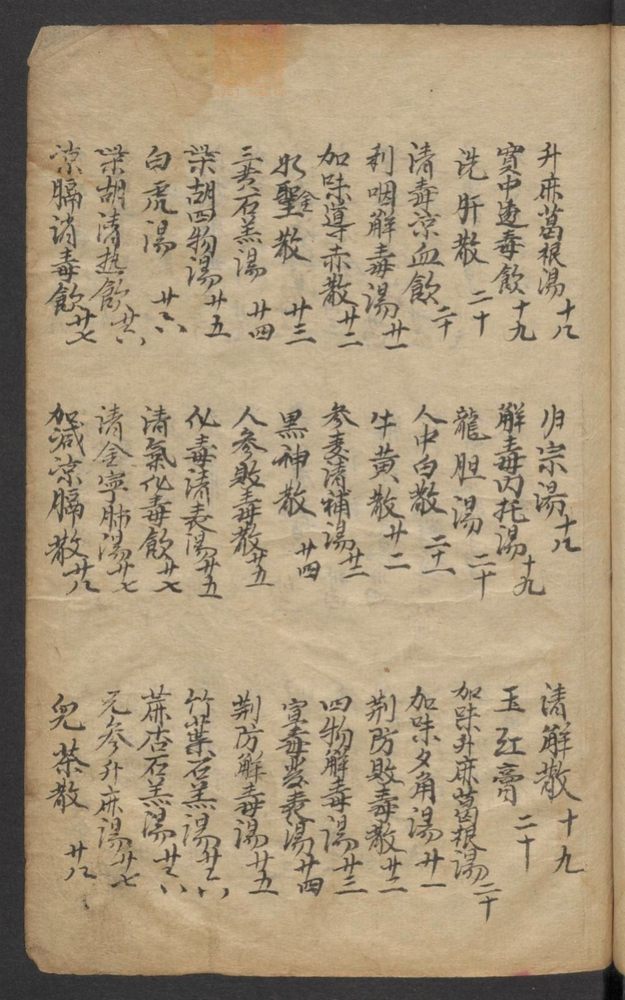 升麻葛根湯 十八
归宗湯 十八
清解散 十九
寬中透毒飲 十九
解毒內托湯 十九
玉紅膏 二十
洗肝散 二十
龍胆湯 二十
加味升麻葛根湯 二十
清毒凉血飲 二十
人中白散 二十一
加味夕角湯 廿一
利咽解毒湯 廿一
牛黃散 廿二
荆防敗毒散 廿二
加味導赤散 廿二
參麦清補湯 廿二
四物解毒湯 廿三
聖金散 廿三
黑神散 廿四
宣毒發表湯 廿四
三黃石羔湯 廿四
人參敗毒散 廿五
荆防解毒湯 廿五
柴胡四物湯 廿五
化毒清表湯 廿五
竹葉石羔湯 廿六
白虎湯 廿六
清氣化毒飲 廿七
蔴杏石羔湯 廿六
柴胡清热飲 廿六
清金寧肺湯 廿七
元參升麻湯 廿七
凉膈消毒飲 廿七
加減凉膈散 廿八
兒茶散 廿八